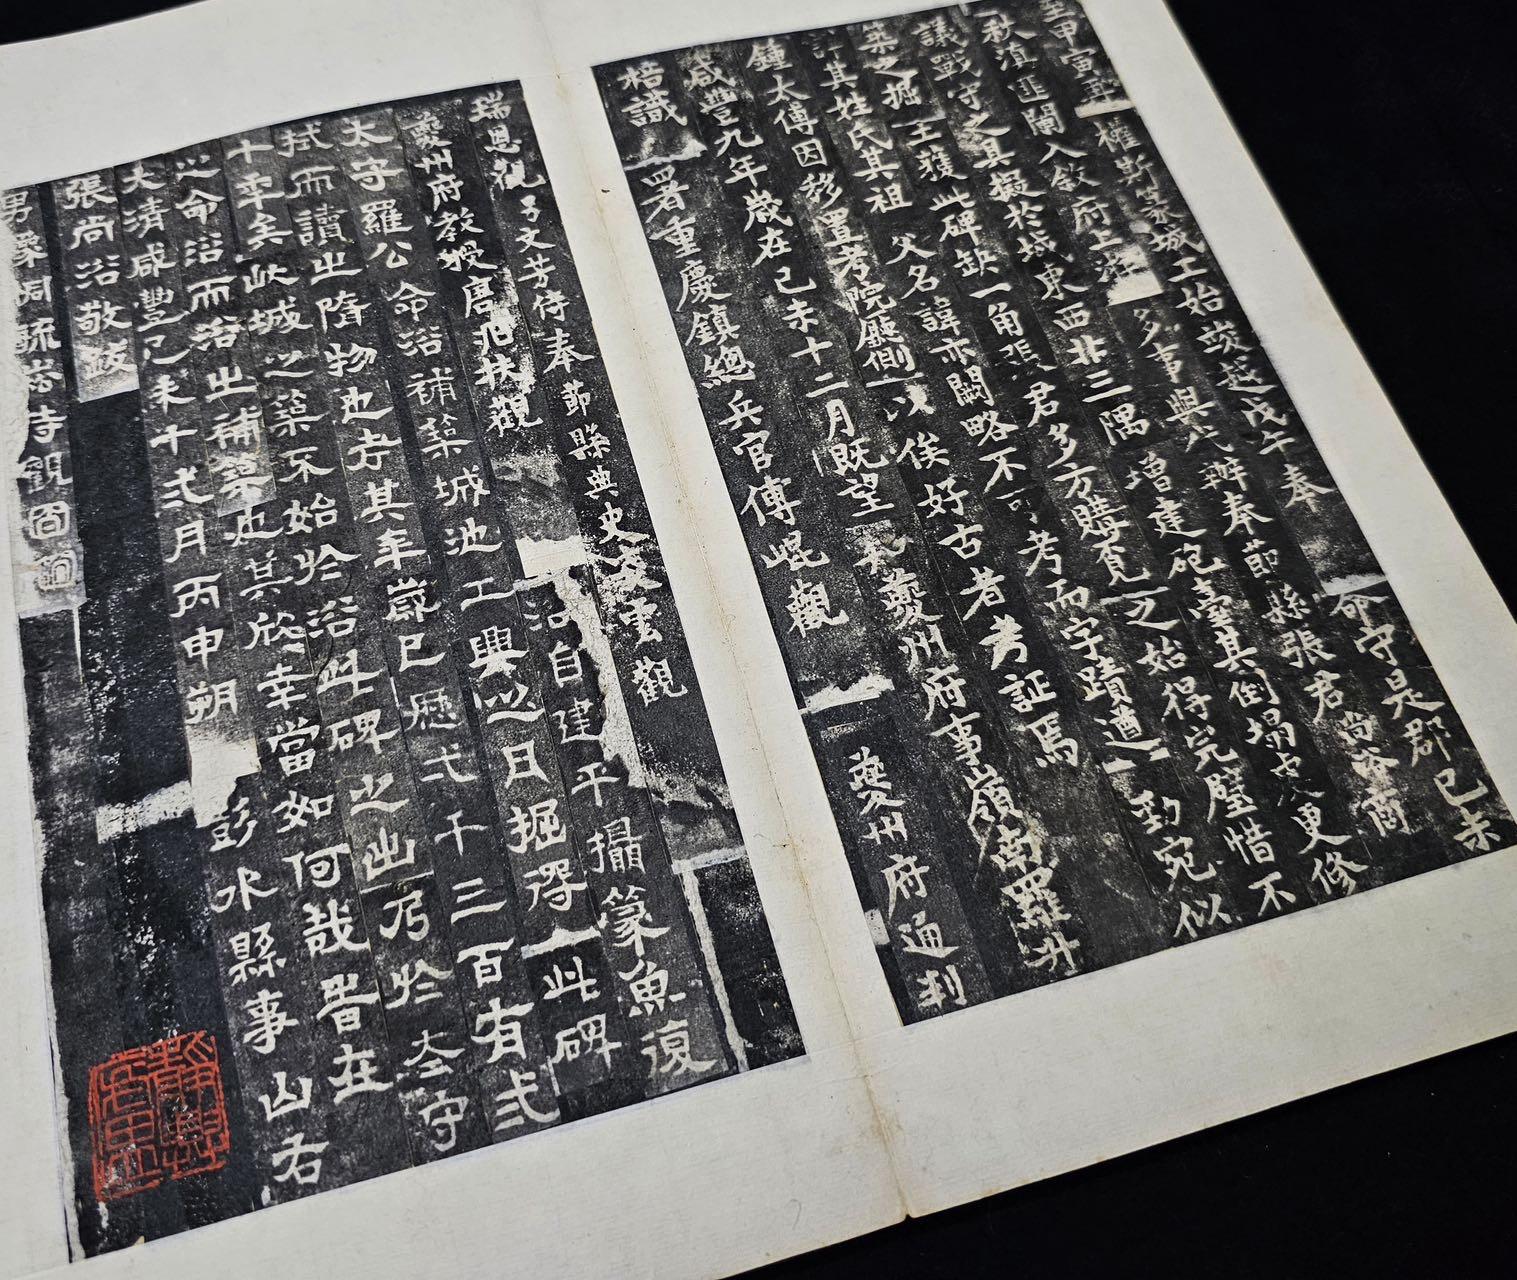 至甲寅年權斯篆城工始竣越戊午奉命守是郡己未
秋滇匪闌入敘府上游多事與戎辦奉節縣張君尚溶商
議戰守之具擬於城東西北三隅增建砲臺其倒塌處更修
築之掘土獲此碑缺一角張君多方購覓之始得完璧惜不
詳其姓氏其祖父名諱亦闕略不可考而字蹟遒勁宛似
鍾太傅因移置考院廳側以俟好古者考証焉
咸豐九年歲在己未十二月既望夔州府事嶺南羅升
棓識署重慶鎮總兵官傅崐觀夔州府通判
瑞恩觀子文芳侍奉節縣典史凌雲觀
夔州府教授唐兆扶觀溶自建平攝篆魚復
太守羅公命溶補築城池工興以日掘得此碑
拭而讀之隋物也考其年歲已歷弌千三百有弌
十年矣此城之築不始於溶此碑之出乃於太守
之命溶而溶之補築也其欣幸當如何哉昔在
大清咸豐己未十弍月丙申朔彭水縣事山右
張尚溶敬跋
男豫同毓崧侍觀